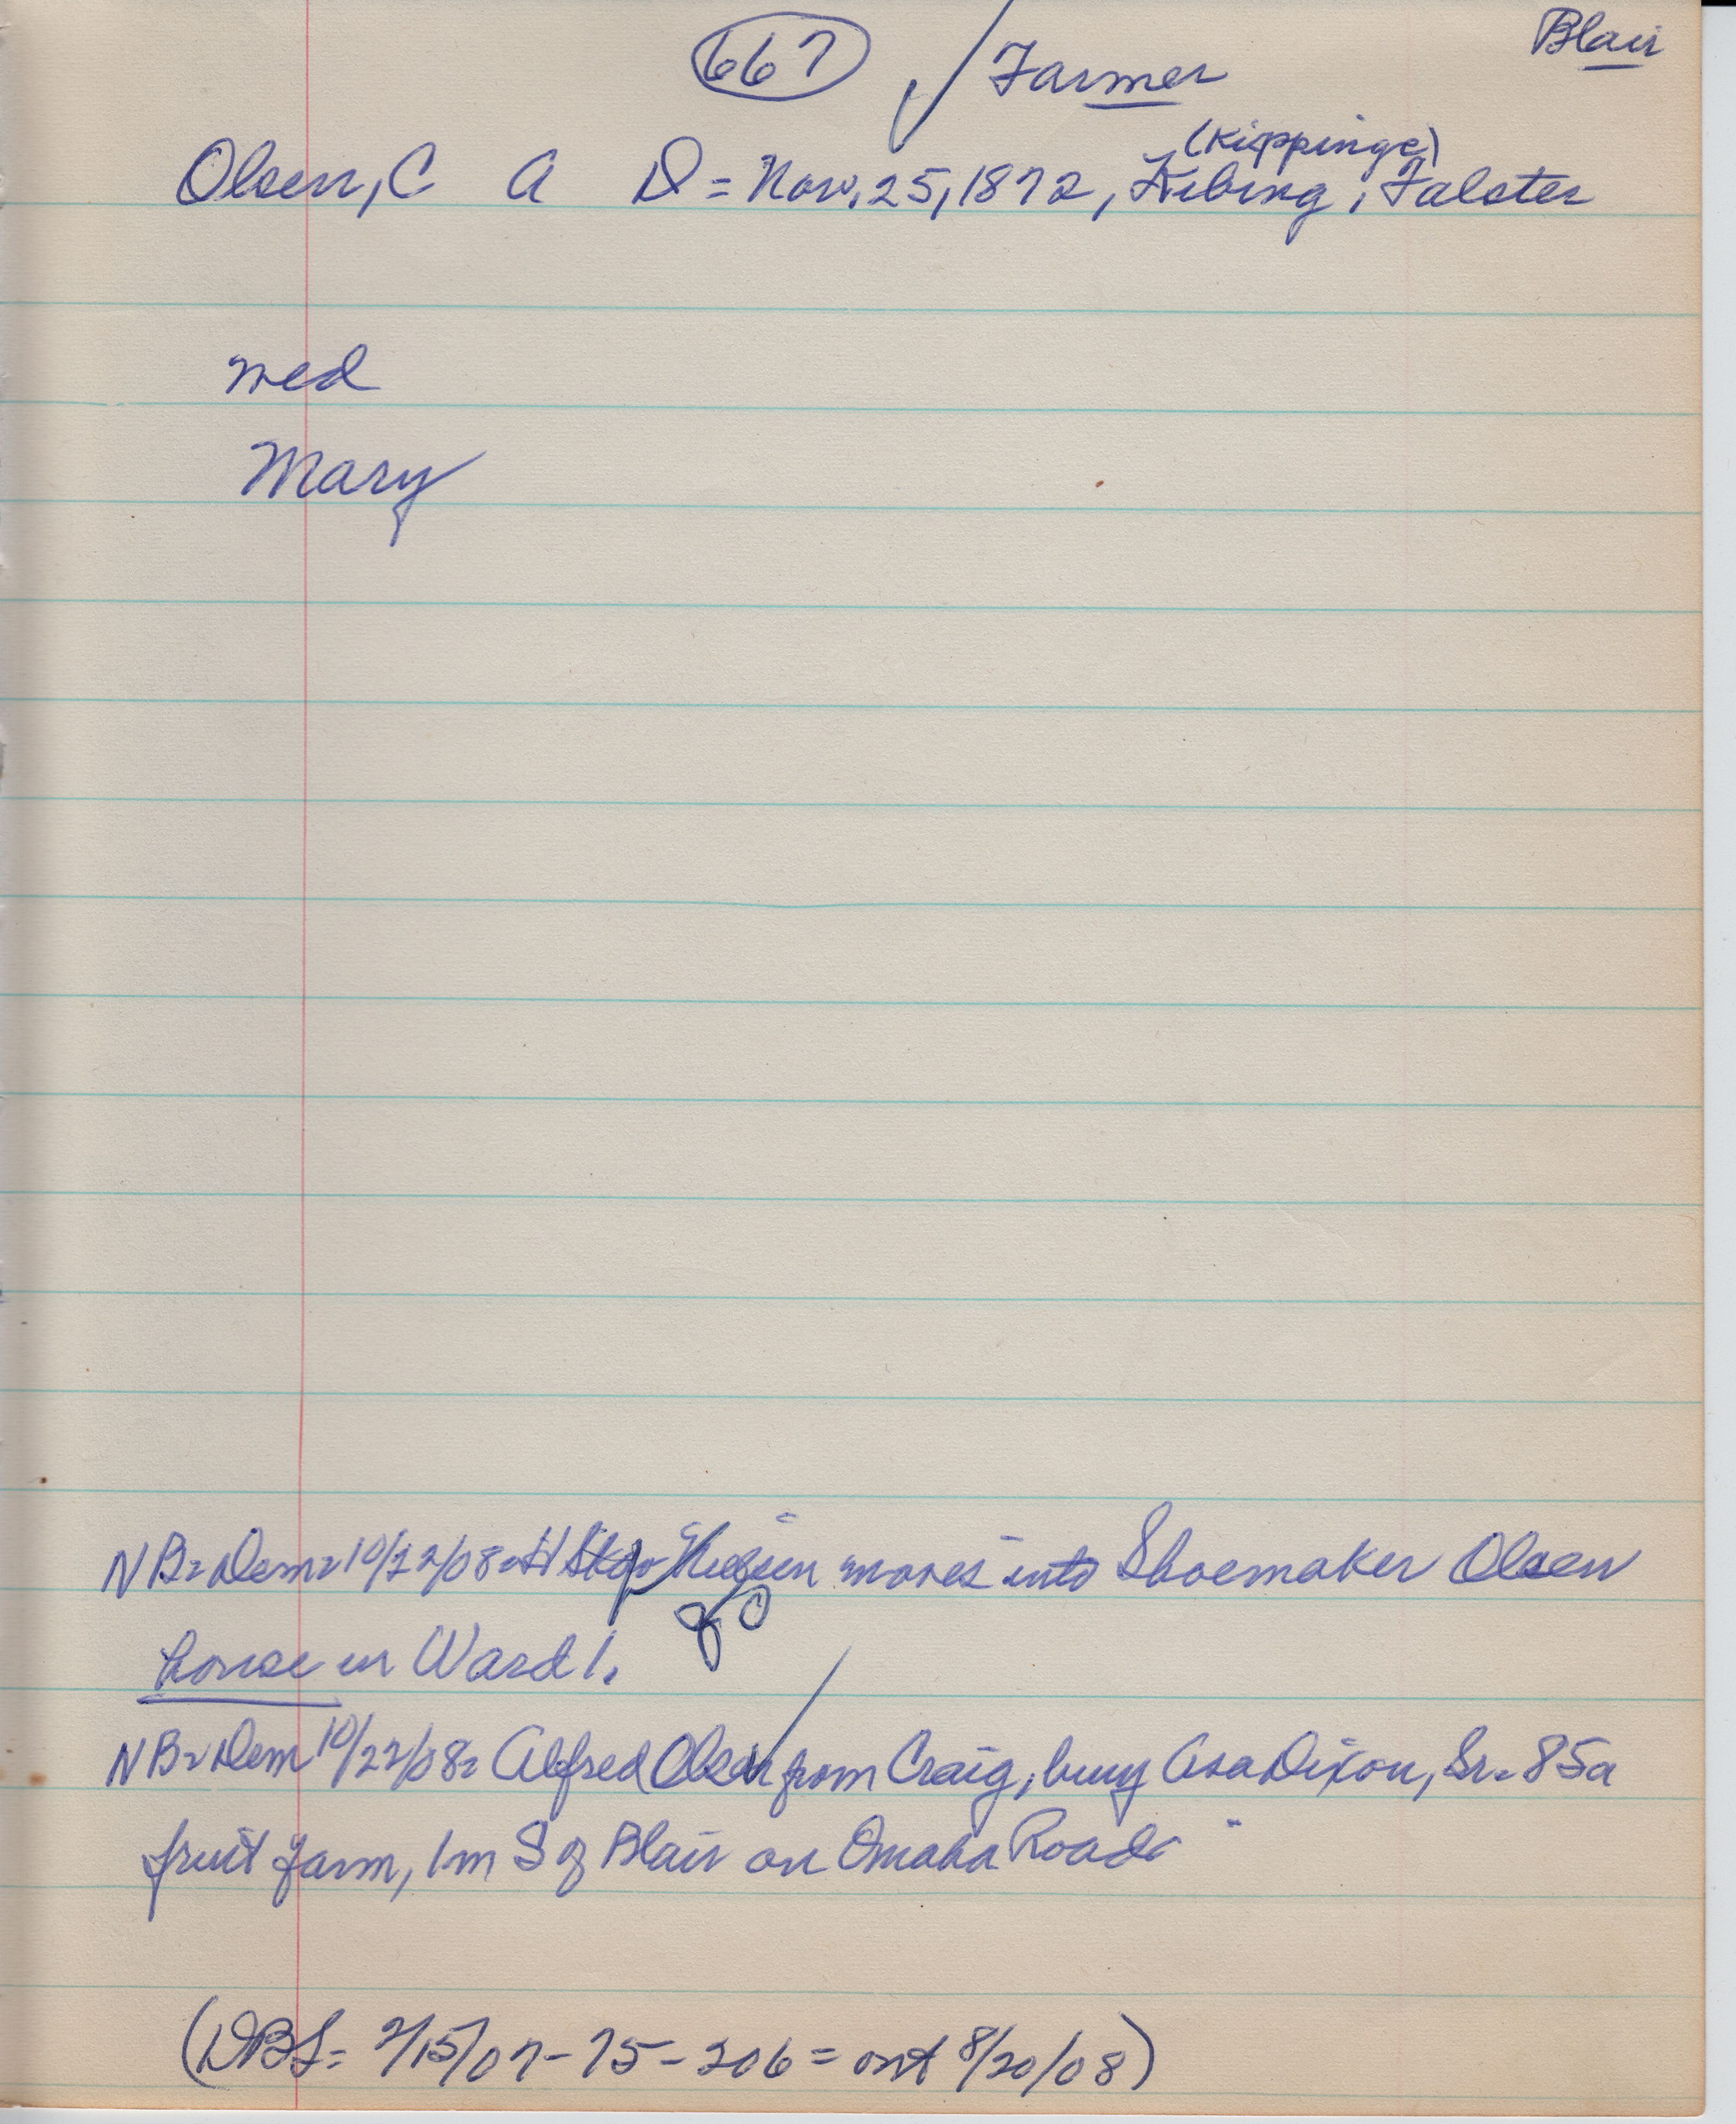 667 Farmer Blair
(Kippinge)
Olsen, C A D = Nov. 25, 1872, Kibing, Falster
med
Mary
NB = Dem = 10/22/08 = H Nielsen moves into Shoemaker Olsen
house in Ward 1.
NB = Dem 10/22/08 = Alfred Olsen from Craig, buy Asa Dixon, Sr. 85a
fruit farm, 1m S of Blair on Omaha Road
(DBS = 2/15/07 - 75 - 206 = out 8/20/08)